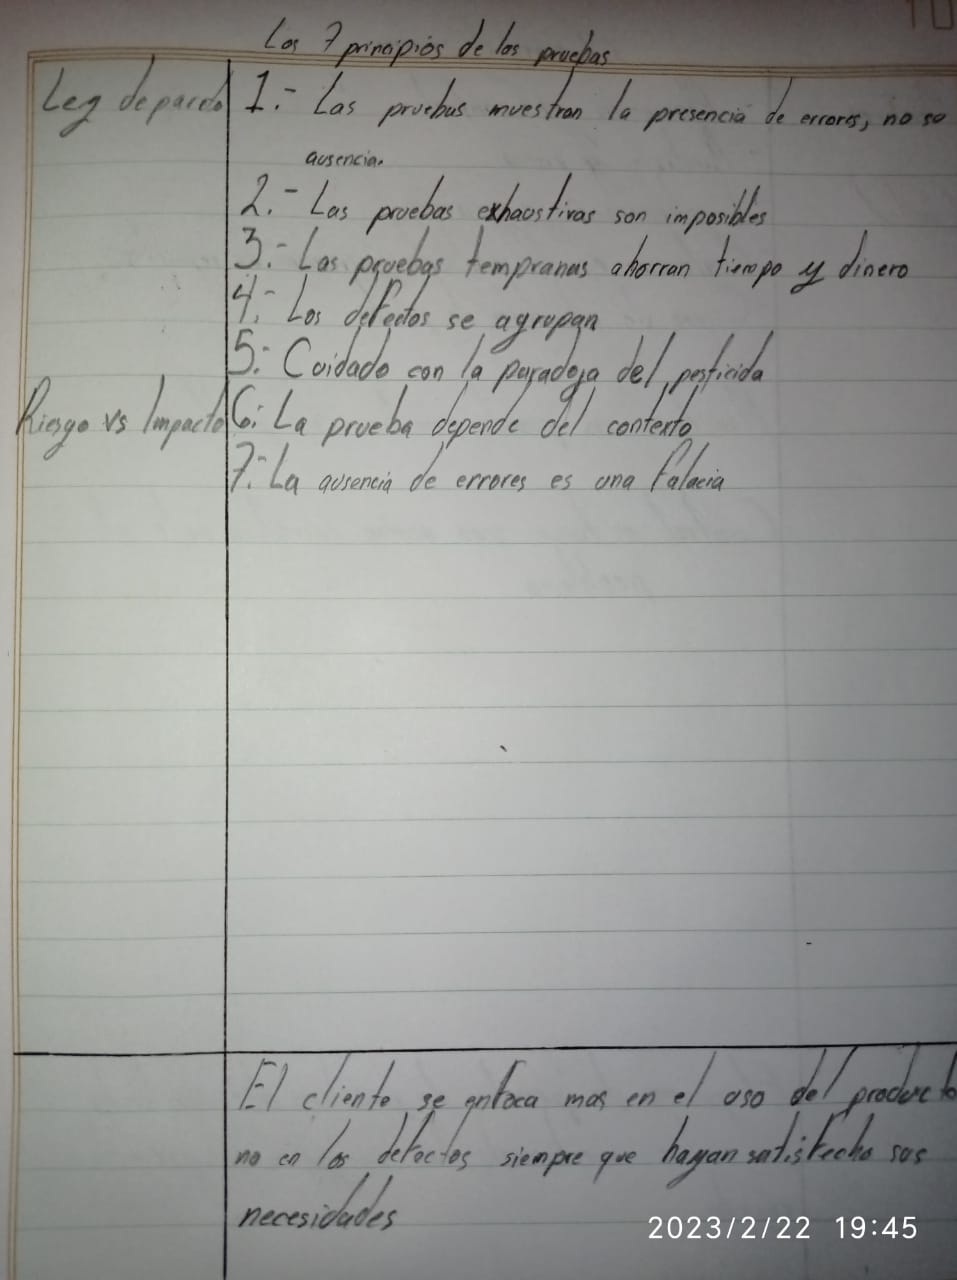 Los 7 principios de las pruebas
Ley de pareto
1.- Las pruebas muestran la presencia de errores, no su
ausencia.
2.- Las pruebas exhaustivas son imposibles
3.- Las pruebas tempranas ahorran tiempo y dinero
4.- Los defectos se agrupan
5.- Cuidado con la paradoja del pesticida
Riesgo vs Impacto
6.- La prueba depende del contexto
7.- La ausencia de errores es una falacia
El cliente se enfoca mas en el uso del producto
no en los defectos siempre que hayan satisfecho sus
necesidades
2023/2/22 19:45